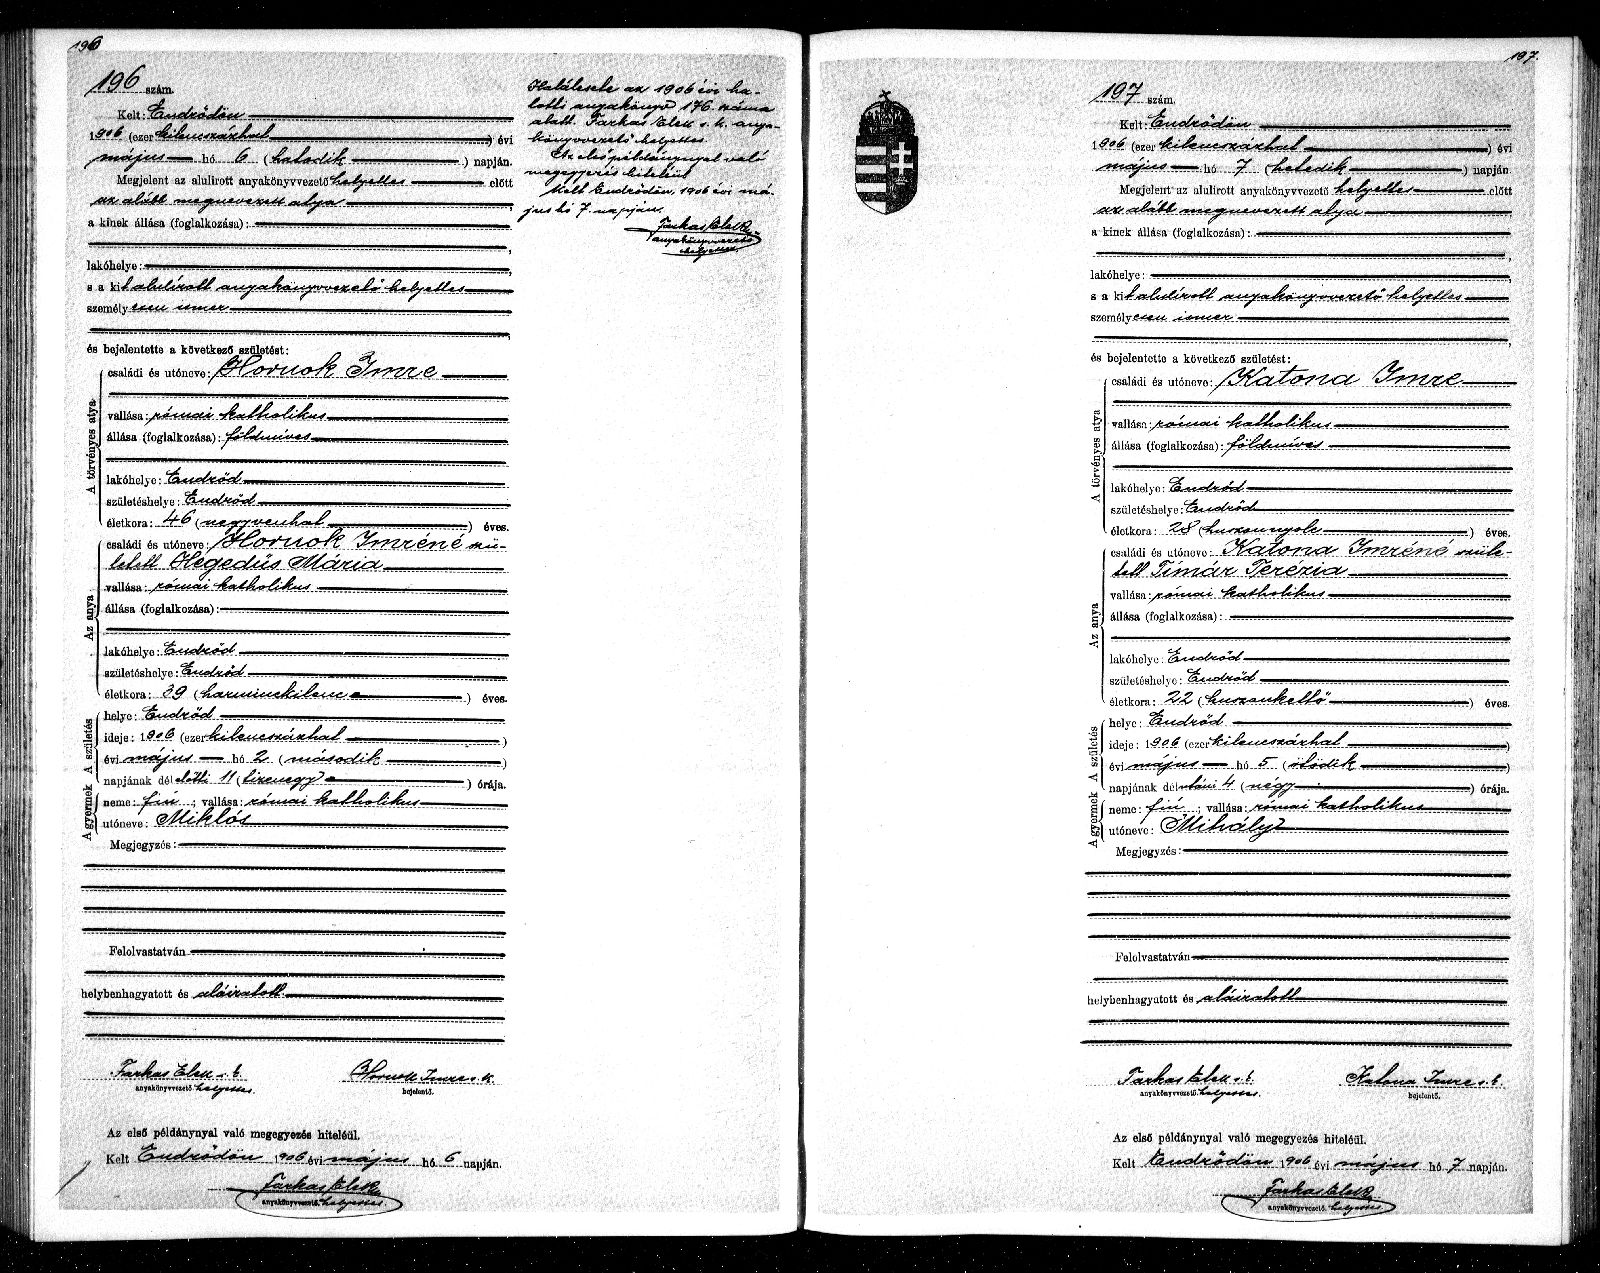 196
196 szám.
Kelt: Endrődön
1906 (ezer kilencszázhat ) évi
május hó 6 (hatodik ) napján.
Megjelent az alulirott anyakönyvvezető helyettes előtt
az alább megnevezett atya
a kinek állása (foglalkozása):
lakóhelye:
s a kit alulírott anyakönyvvezető helyettes
személyesen ismer
és bejelentette a következő születést:
A törvényes atya
családi és utóneve: Hornok Imre
vallása: római katholikus
állása (foglalkozása): földmíves
lakóhelye: Endrőd
születéshelye: Endrőd
életkora: 46 (negyvenhat ) éves.
Az anya
családi és utóneve: Hornok Imréné szü-
letett Hegedüs Mária
vallása: római katholikus
állása (foglalkozása):
lakóhelye: Endrőd
születéshelye: Endrőd
életkora: 39 (harminckilenc ) éves.
A születés
helye: Endrőd
ideje: 1906 (ezer kilencszázhat )
évi május hó 2 (második )
napjának délelőtti 11 (tizenegy ) órája.
A gyermek
neme: fiú; vallása: római katholikus
utóneve: Miklós
Megjegyzés:
Felolvastatván
helybenhagyatott és aláiratott.
Farkas Elek s. k. Hornok Imre s. k.
anyakönyvvezető helyettes. bejelentő.
Az első példánynyal való megegyezés hiteléül.
Kelt Endrődön 1906 évi május hó 6 napján.
Farkas Elek
anyakönyvvezető helyettes
Halálesete az 1906 évi ha-
lotti anyakönyv 176. száma
alatt. Farkas Elek s. k. anya-
könyvvezető helyettes
Az első példánynyal való
megegyezés hiteléül
Kelt Endrődön, 1906 évi má-
jus hó 7 napján.
Farkas Elek
anyakönyvvezető
helyettes
197.
197 szám.
Kelt: Endrődön
1906 (ezer kilencszázhat ) évi
május hó 7 (hetedik ) napján
Megjelent az alulirott anyakönyvvezető helyettes előtt
az alább megnevezett atya
a kinek állása (foglalkozása):
lakóhelye:
s a kit alulírott anyakönyvvezető helyettes
személyesen ismer
és bejelentette a következő születést:
A törvényes atya
családi és utóneve: Katona Imre
vallása: római katholikus
állása (foglalkozása): földmíves
lakóhelye: Endrőd
születéshelye: Endrőd
életkora: 28 (huszonnyolc ) éves.
Az anya
családi és utóneve: Katona Imréné szüle-
tett Tímár Terézia
vallása: római katholikus
állása (foglalkozása):
lakóhelye: Endrőd
születéshelye: Endrőd
életkora: 22 (huszonkettő ) éves.
A születés
helye: Endrőd
ideje: 1906 (ezer kilencszázhat )
évi május hó 5 (ötödik )
napjának délutáni 4 (négy ) órája.
A gyermek
neme: fiú; vallása: római katholikus
utóneve: Mihály
Megjegyzés:
Felolvastatván
helybenhagyatott és aláiratott
Farkas Elek s. k. Katona Imre s. k.
anyakönyvvezető helyettes. bejelentő.
Az első példánynyal való megegyezés hiteléül.
Kelt Endrődön 1906 évi május hó 7 napján.
Farkas Elek
anyakönyvvezető helyettes